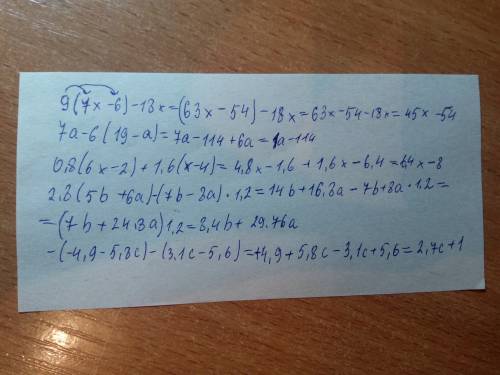 9(7x-6)-18x=(63x-54)-18x=63x-54-18x=45x-54
7a-6(19-a)=7a-114+6a=1a-114
0,8(6x-2)+1,6(x-4)=4,8x-1,6+1,6x-6,4=6,4x-8
2,8(5b+6a)-(7b-8a)·1,2=14b+16,8a-7b+8a·1,2=
=(7b+24,8a)1,2=8,4b+29.76a
-(-4,9-5,8c)-(3.1c-5,6)=+4,9+5,8c-3,1c+5,6=2,7c+1